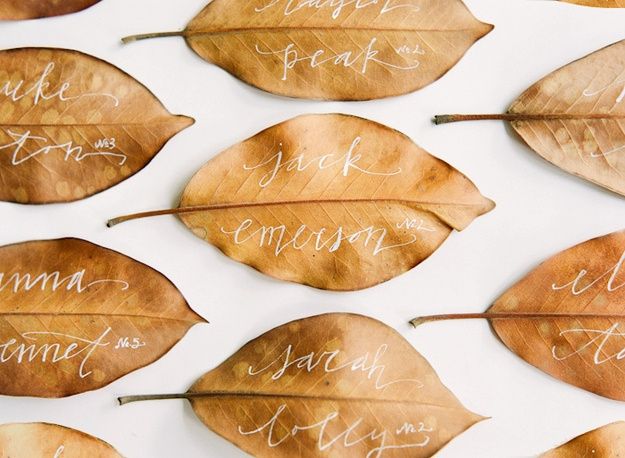 peak No.2
uke
ton No.3
jack
emerson
anna
ennet No.5
sarah
lolly No.2
el
ta